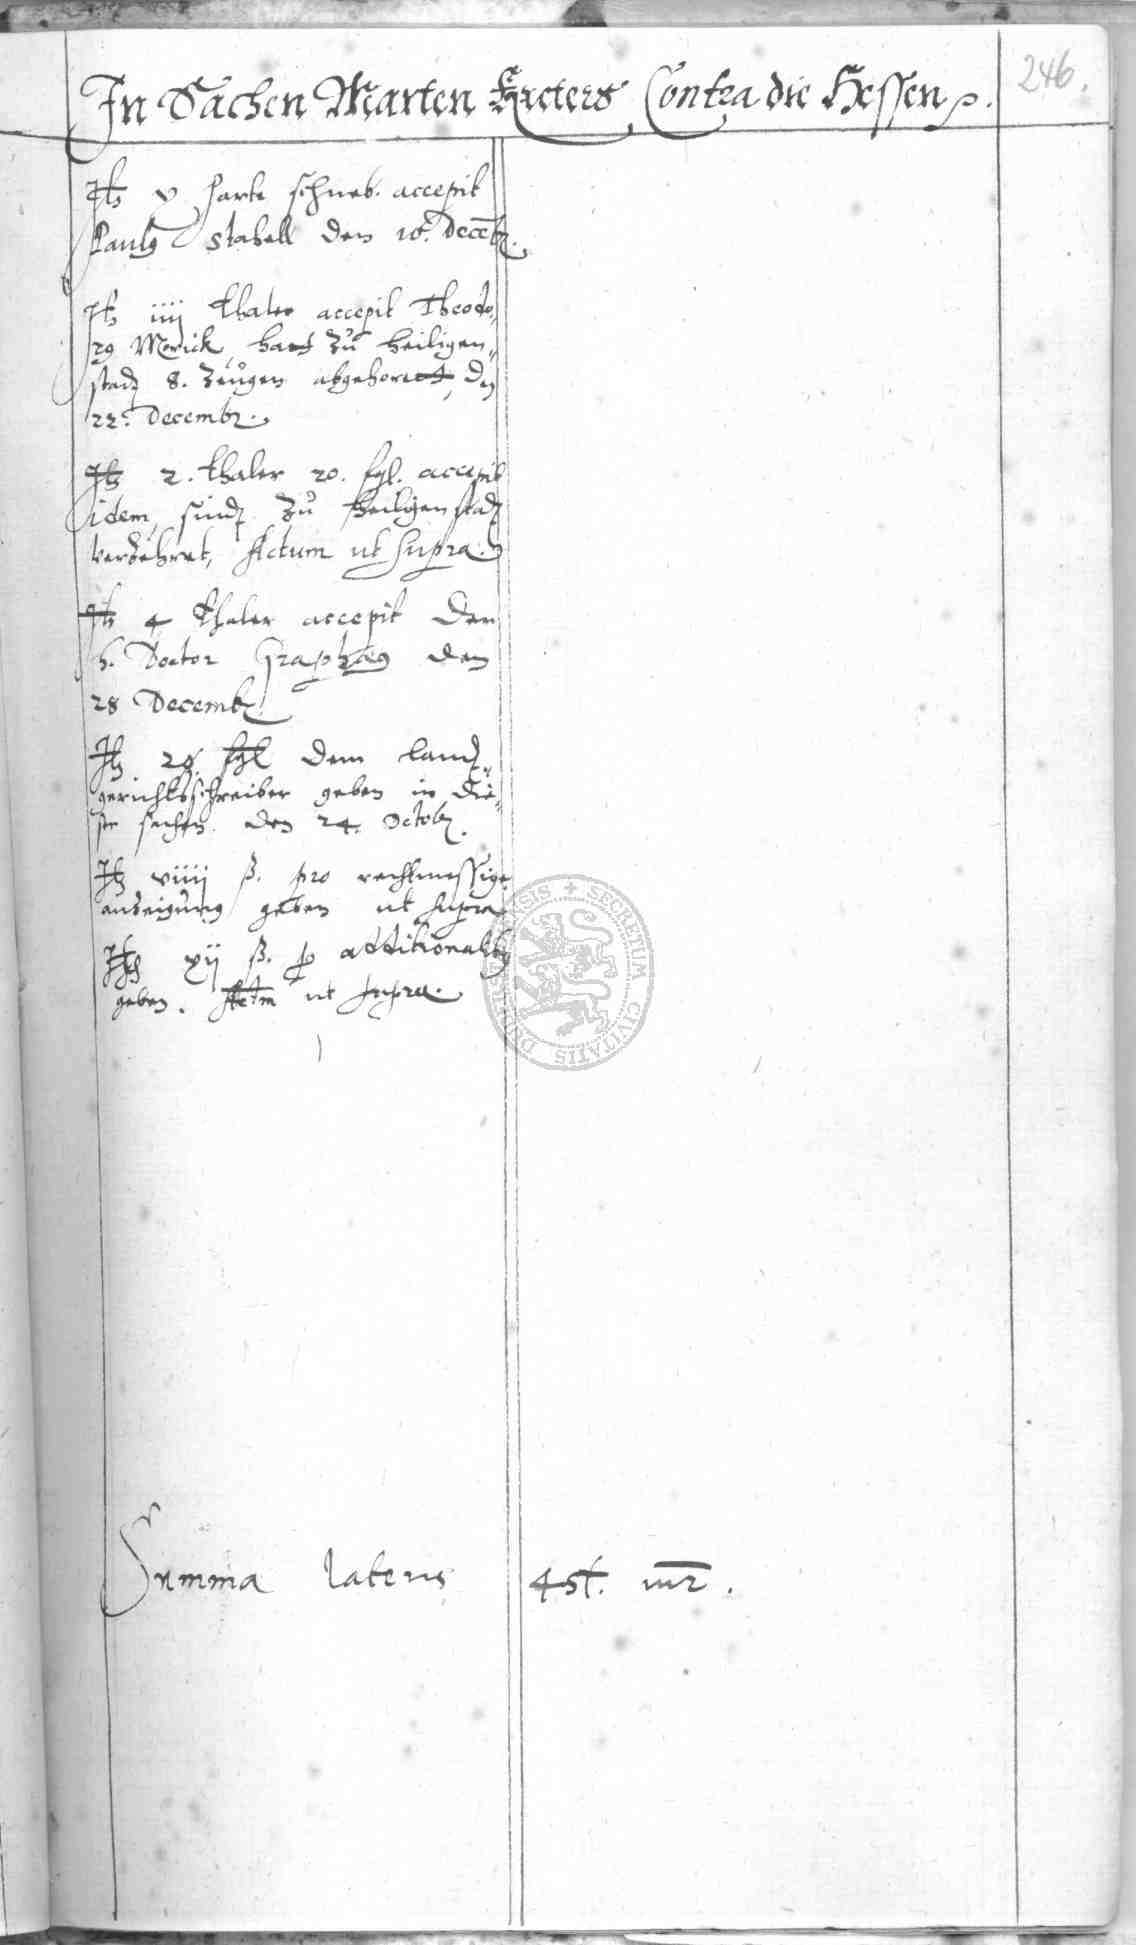 246.
In Sachen Marten Exeters Contra die Hessen
It v harte schneb. accepit
Paulg Stabell den 18. Decēbr.
It iiij thaler accepit Theodo„
rg Morick, hatt zŭ Heiligen„
stadt 8. zeŭgen abgehorett, den
22. Decembr.
It 2. thaler 20. sgl. accepit
idem, sindt zŭ Heiligenstadt
verzehret, Actum ut supra.
It 4 thaler accepit der
h. Doctor Graphæg den
28 Decembr
It 20. sgl dem landt„
gerichtsschreiber geben in die„
ser sachen. den 24. Octobr.
It viiij ß. pro rechtmessige
anzeigŭng geben ut supra
It xij ß. p additionalibg
geben. Actm ut supra.
Summa lateris 45f. mr.
SECRETUM CIVITATIS